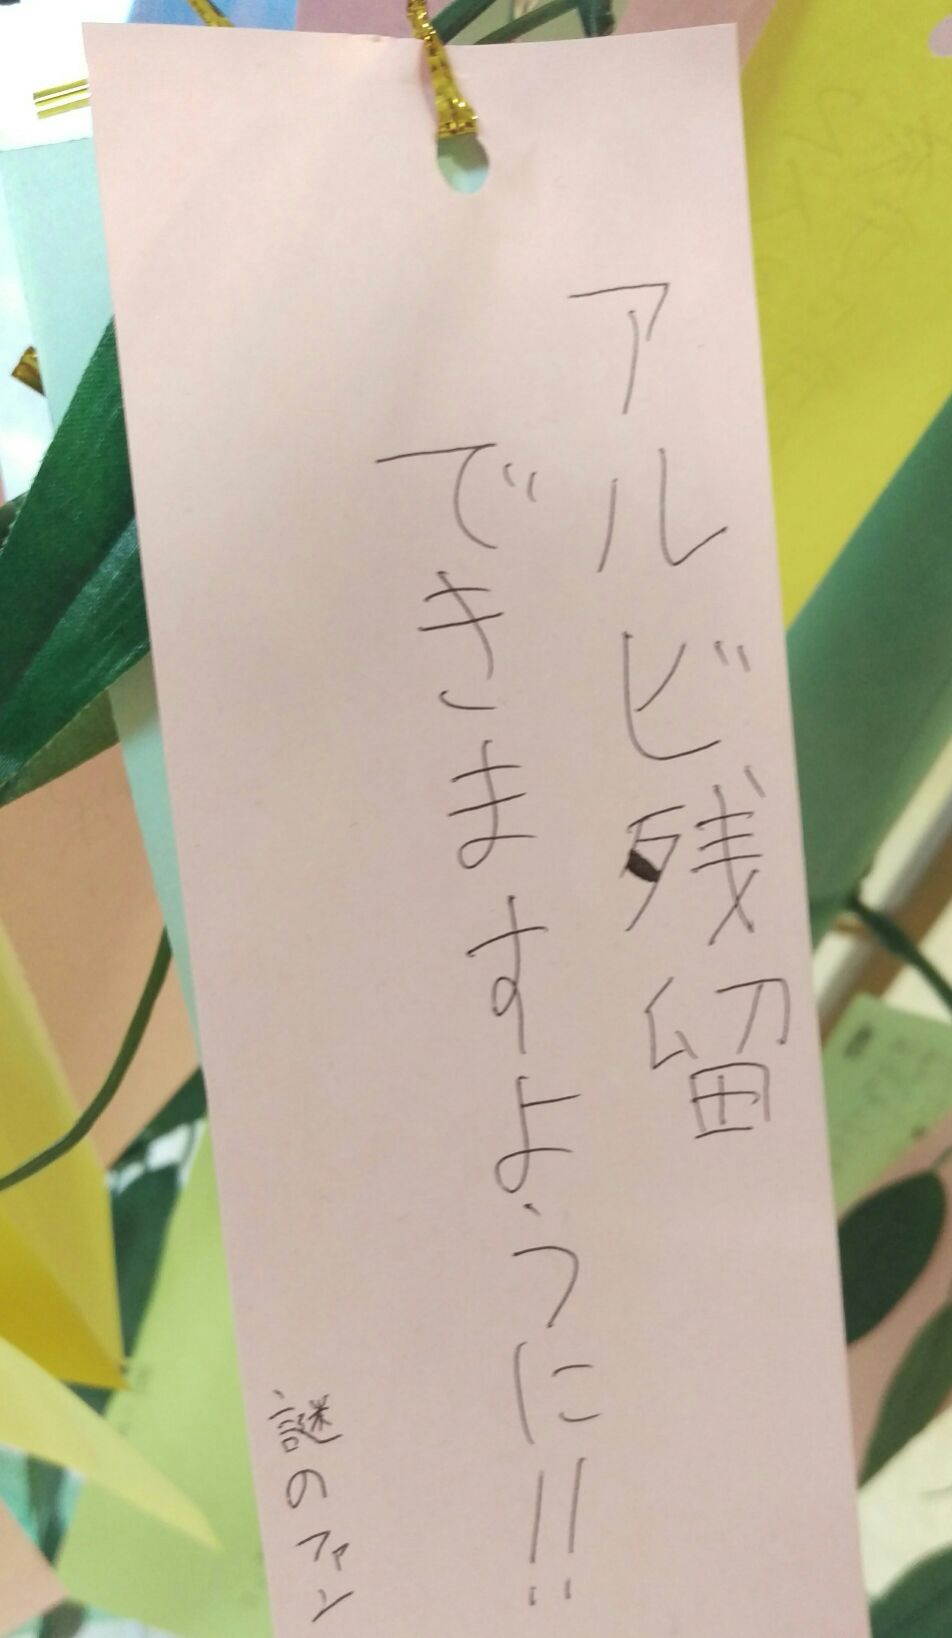 アルビ残留
できますように!!
謎のファン